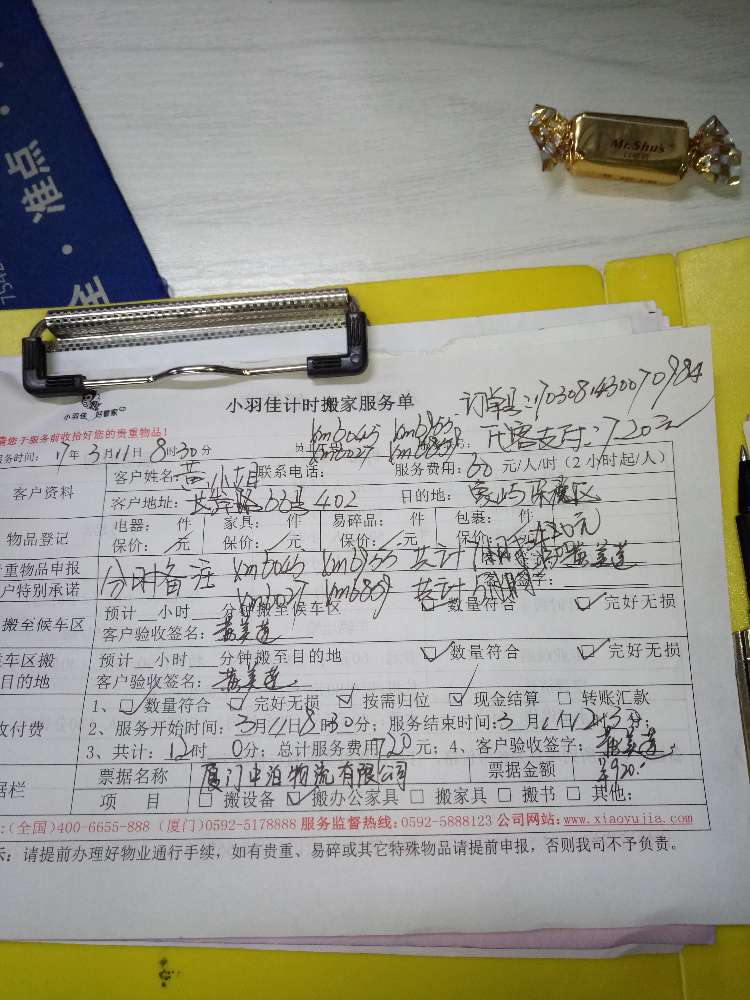 准点
Mr.Shu's
小羽佳 好管家
小羽佳计时搬家服务单
订单号:170308143007098
请您于服务前收拾好您的贵重物品!
服务时间: 17年3月11日8时30分
km3045
支付:720元
客户资料
客户姓名: 黄小姐 联系电话: 服务费用:60元/人/时(2小时起/人)
客户地址: 66号402 目的地: 象屿保税区
物品登记
电器: 件 家具: 件 易碎品: 件 包裹: 件
保价: 元 保价: 元 保价: 元 保价: 元
贵重物品申报
分时备注 共计
客户特别承诺
共计
搬至候车区
预计 小时 分钟搬至候车区 数量符合 完好无损
客户验收签名: 黄美莲
候车区搬
目的地
预计 小时 分钟搬至目的地 数量符合 完好无损
客户验收签名: 黄美莲
收付费
1、数量符合 完好无损 按需归位 现金结算 转账汇款
2、服务开始时间:3月11日8时30分; 服务结束时间:3月11日12时 分;
3、共计:12时0分; 总计服务费用720元; 4、客户验收签字: 黄美莲
票据栏
票据名称 厦门中泊物流有限公司 票据金额 ¥920.-
项 目 搬设备 搬办公家具 搬家具 搬书 其他:
:(全国)400-6655-888 (厦门)0592-5178888 服务监督热线:0592-5888123 公司网站:www.xiaoyujia.com
示: 请提前办理好物业通行手续,如有贵重、易碎或其它特殊物品请提前申报,否则我司不予负责。